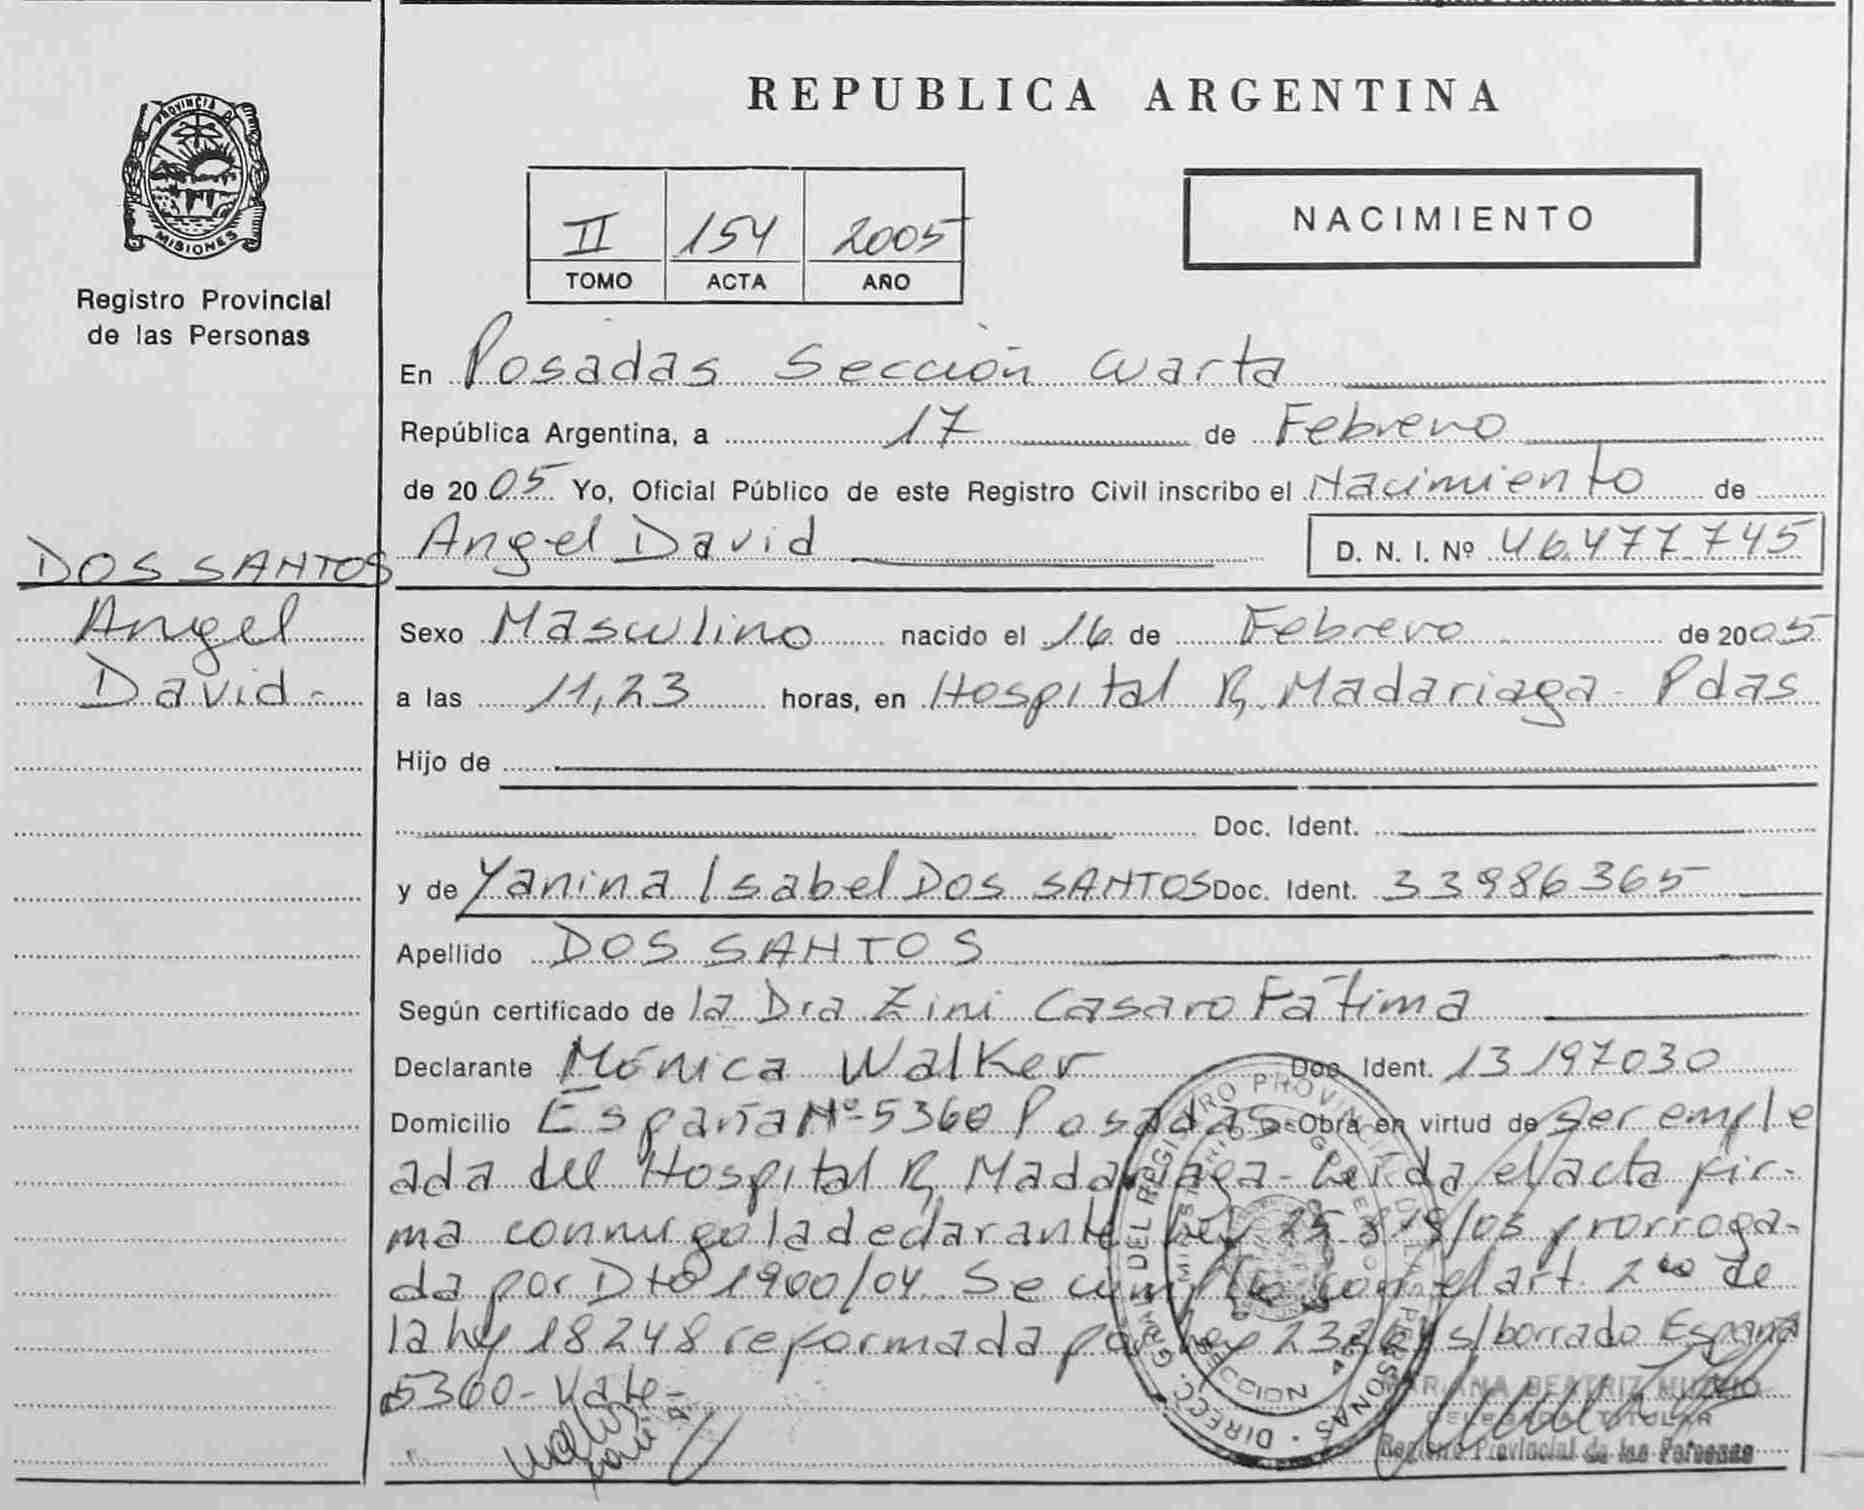 REPUBLICA ARGENTINA
PROVINCIA DE
MISIONES
Registro Provincial
de las Personas
II 154 2005
TOMO ACTA AÑO
NACIMIENTO
En Posadas Sección Cuarta
República Argentina, a 17 de Febrero
de 2005 Yo, Oficial Público de este Registro Civil inscribo el Nacimiento de
Angel David D. N. I. Nº 46.477.745
DOS SANTOS
Angel
David-
Sexo Masculino nacido el 16 de Febrero de 2005
a las 11,23 horas, en Hospital R. Madariaga - Pdas
Hijo de
Doc. Ident.
y de Yanina Isabel DOS SANTOS Doc. Ident. 33986365
Apellido DOS SANTOS
Según certificado de la Dra Zini Casaro Fatima
Declarante Mónica Walker Doc. Ident. 13197030
Domicilio España Nº 5360 Posadas Obra en virtud de ser emple
ada del Hospital R. Madariaga - Leida el acta fir-
ma conmigo la declarante Ley 25.819/03 prorroga-
da por Dto 1900/04. Se cumplio con el art. 2do de
la ley 18248 reformada por ley 23264 s/borrado España
5360 - Vale -
DIRECC. GRAL. DEL REGISTRO PROVINCIAL DE LAS PERSONAS
MINISTERIO DE GOBIERNO
MARIANA BEATRIZ
DELEGADA TITULAR
Registro Provincial de las Personas